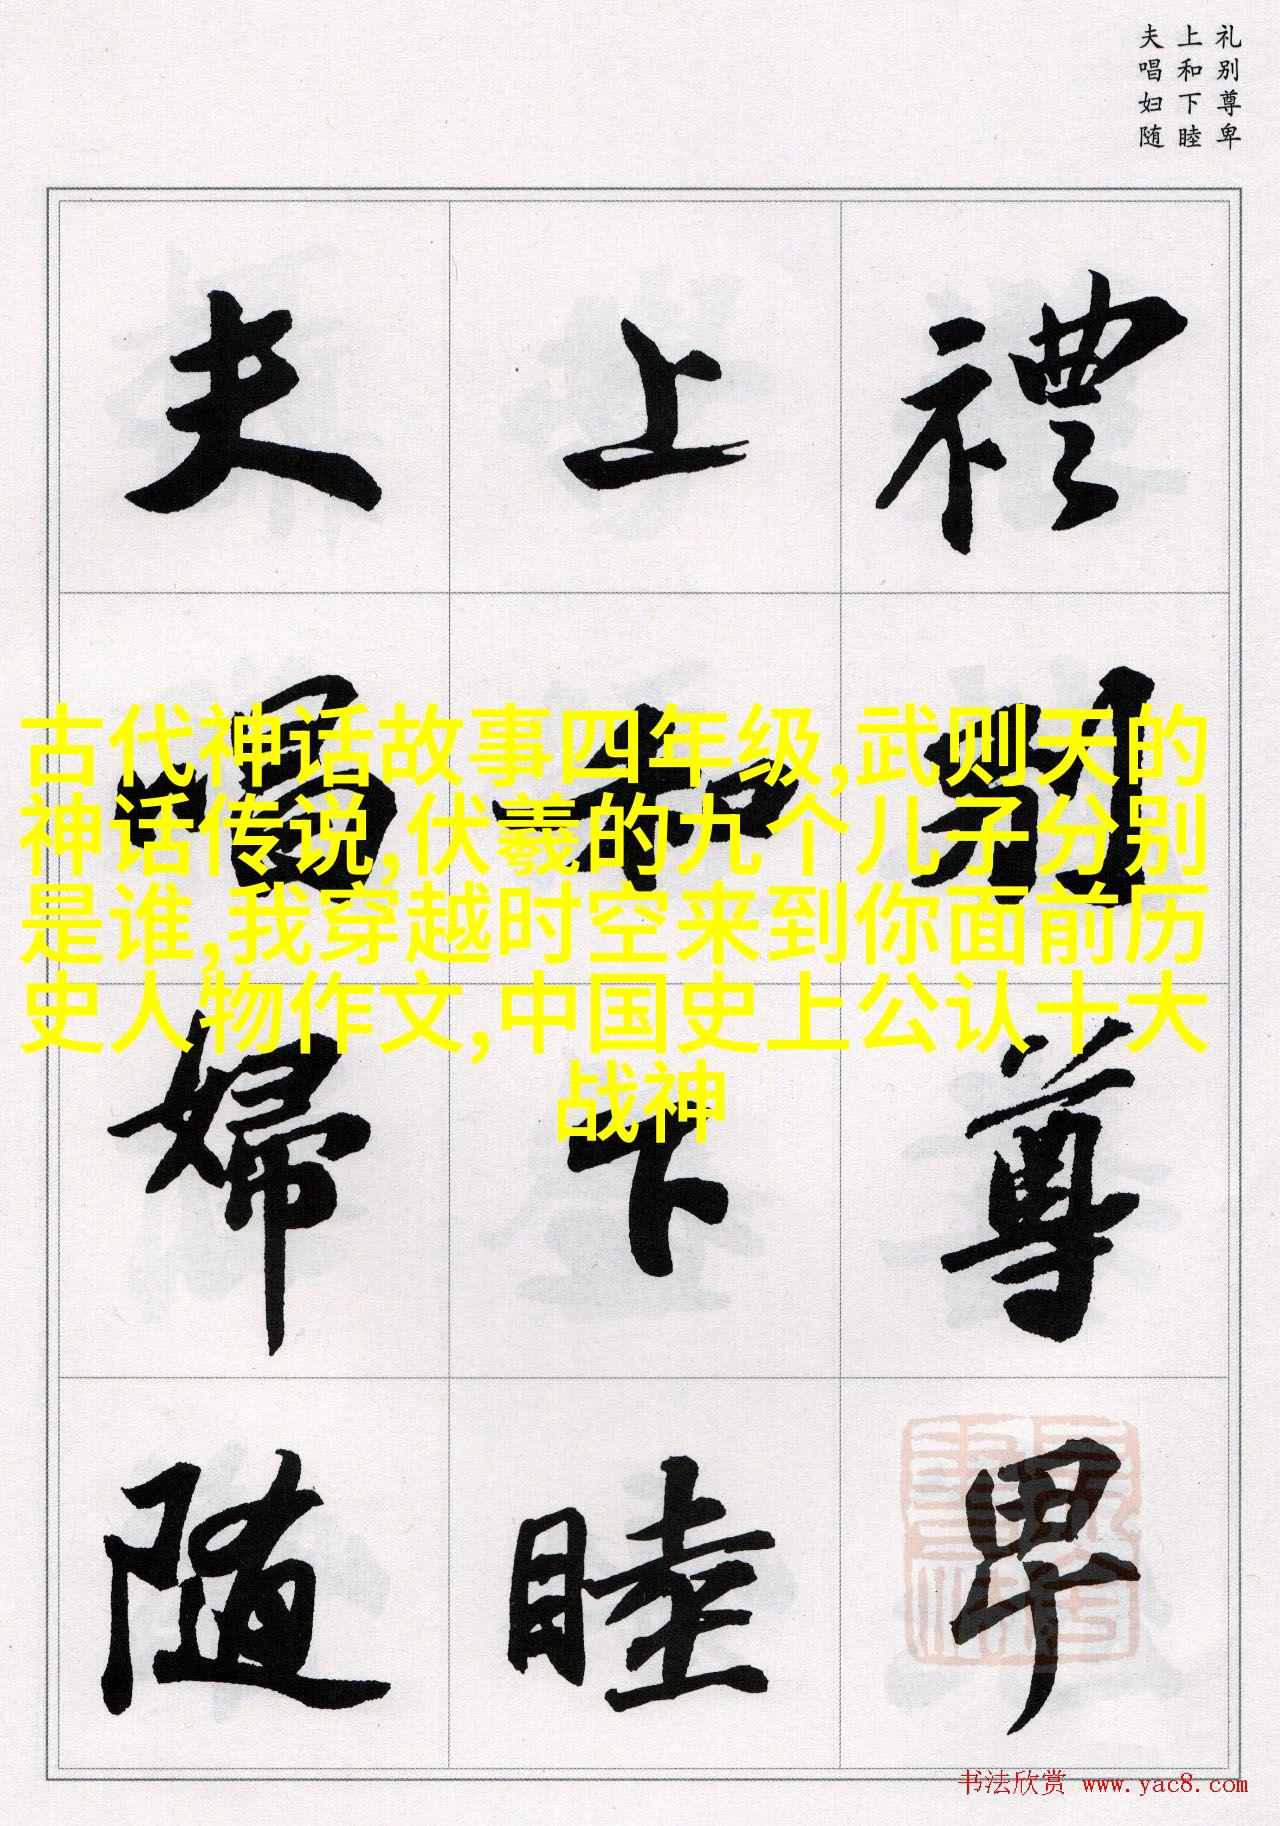 礼别尊卑
上和下睦
夫唱妇随
禮别尊卑
上和下睦
夫唱婦随
古代神话故事四年级,武则天的
神话传说,伏羲的九个儿子分别
是谁,我穿越时空来到你面前历
史人物作文,中国史上公认十大
战神
书法欣赏 www.yac8.com